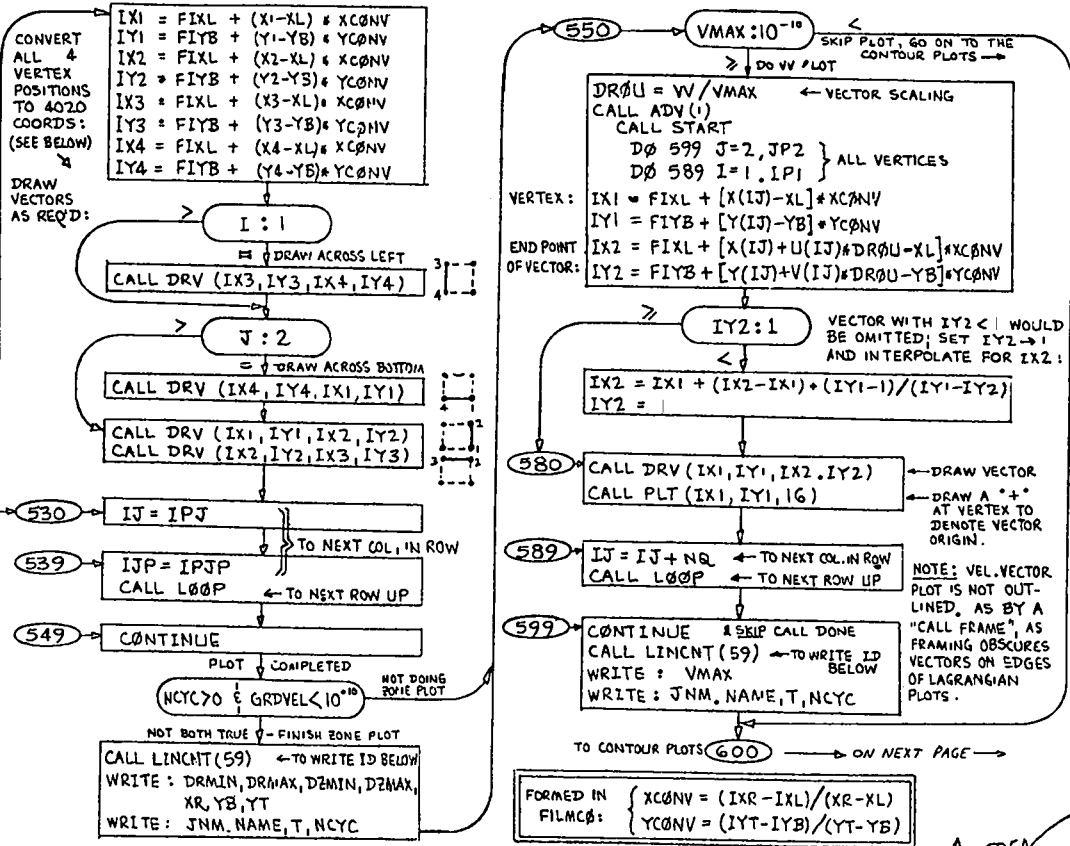 CONVERT
ALL 4
VERTEX
POSITIONS
TO 4020
COORDS:
(SEE BELOW)
DRAW
VECTORS
AS REQ'D:
IX1 = FIXL + (X1-XL) * XCØNV
IY1 = FIYB + (Y1-YB) * YCØNV
IX2 = FIXL + (X2-XL) * XCØNV
IY2 = FIYB + (Y2-YB) * YCØNV
IX3 = FIXL + (X3-XL) * XCØNV
IY3 = FIYB + (Y3-YB) * YCØNV
IX4 = FIXL + (X4-XL) * XCØNV
IY4 = FIYB + (Y4-YB) * YCØNV
> I : 1
= DRAW ACROSS LEFT
CALL DRV (IX3, IY3, IX4, IY4)
3
4
> J : 2
= DRAW ACROSS BOTTOM
CALL DRV (IX4, IY4, IX1, IY1)
4
CALL DRV (IX1, IY1, IX2, IY2)
CALL DRV (IX2, IY2, IX3, IY3)
2
3 2
530 IJ = IPJ
TO NEXT COL. IN ROW
539 IJP = IPJP
CALL LØØP ← TO NEXT ROW UP
549 CØNTINUE
PLOT COMPLETED
NCYC>0 & GRDVEL<10⁺¹⁰
NOT DOING
ZONE PLOT
NOT BOTH TRUE - FINISH ZONE PLOT
CALL LINCNT(59) ← TO WRITE ID BELOW
WRITE : DRMIN, DRMAX, DZMIN, DZMAX,
XR, YB, YT
WRITE : JNM, NAME, T, NCYC
550 VMAX : 10⁻¹⁰ <
SKIP PLOT, GO ON TO THE
CONTOUR PLOTS →
≥ DO VV PLOT
DRØU = VV/VMAX ← VECTOR SCALING
CALL ADV(1)
CALL START
DØ 599 J=2, JP2
DØ 589 I=1, IP1
ALL VERTICES
VERTEX: IX1 = FIXL + [X(IJ)-XL]*XCØNV
IY1 = FIYB + [Y(IJ)-YB]*YCØNV
END POINT OF VECTOR: IX2 = FIXL + [X(IJ)+U(IJ)*DRØU-XL]*XCØNV
IY2 = FIYB + [Y(IJ)+V(IJ)*DRØU-YB]*YCØNV
≥ IY2 : 1
<
VECTOR WITH IY2 < 1 WOULD
BE OMITTED; SET IY2 → 1
AND INTERPOLATE FOR IX2:
IX2 = IX1 + (IX2-IX1) * (IY1-1)/(IY1-IY2)
IY2 = 1
580 CALL DRV(IX1, IY1, IX2, IY2) ← DRAW VECTOR
CALL PLT (IX1, IY1, 16) ← DRAW A "+"
AT VERTEX TO
DENOTE VECTOR
ORIGIN.
589 IJ = IJ + NQ ← TO NEXT COL. IN ROW
CALL LØØP ← TO NEXT ROW UP
NOTE: VEL. VECTOR
PLOT IS NOT OUT-
LINED, AS BY A
"CALL FRAME", AS
FRAMING OBSCURES
VECTORS ON EDGES
OF LAGRANGIAN
PLOTS.
599 CØNTINUE & SKIP CALL DONE
CALL LINCNT(59) ← TO WRITE ID
BELOW
WRITE : VMAX
WRITE : JNM, NAME, T, NCYC
TO CONTOUR PLOTS 600 → ON NEXT PAGE →
FORMED IN
FILMCØ:
XCØNV = (IXR-IXL)/(XR-XL)
YCØNV = (IYT-IYB)/(YT-YB)